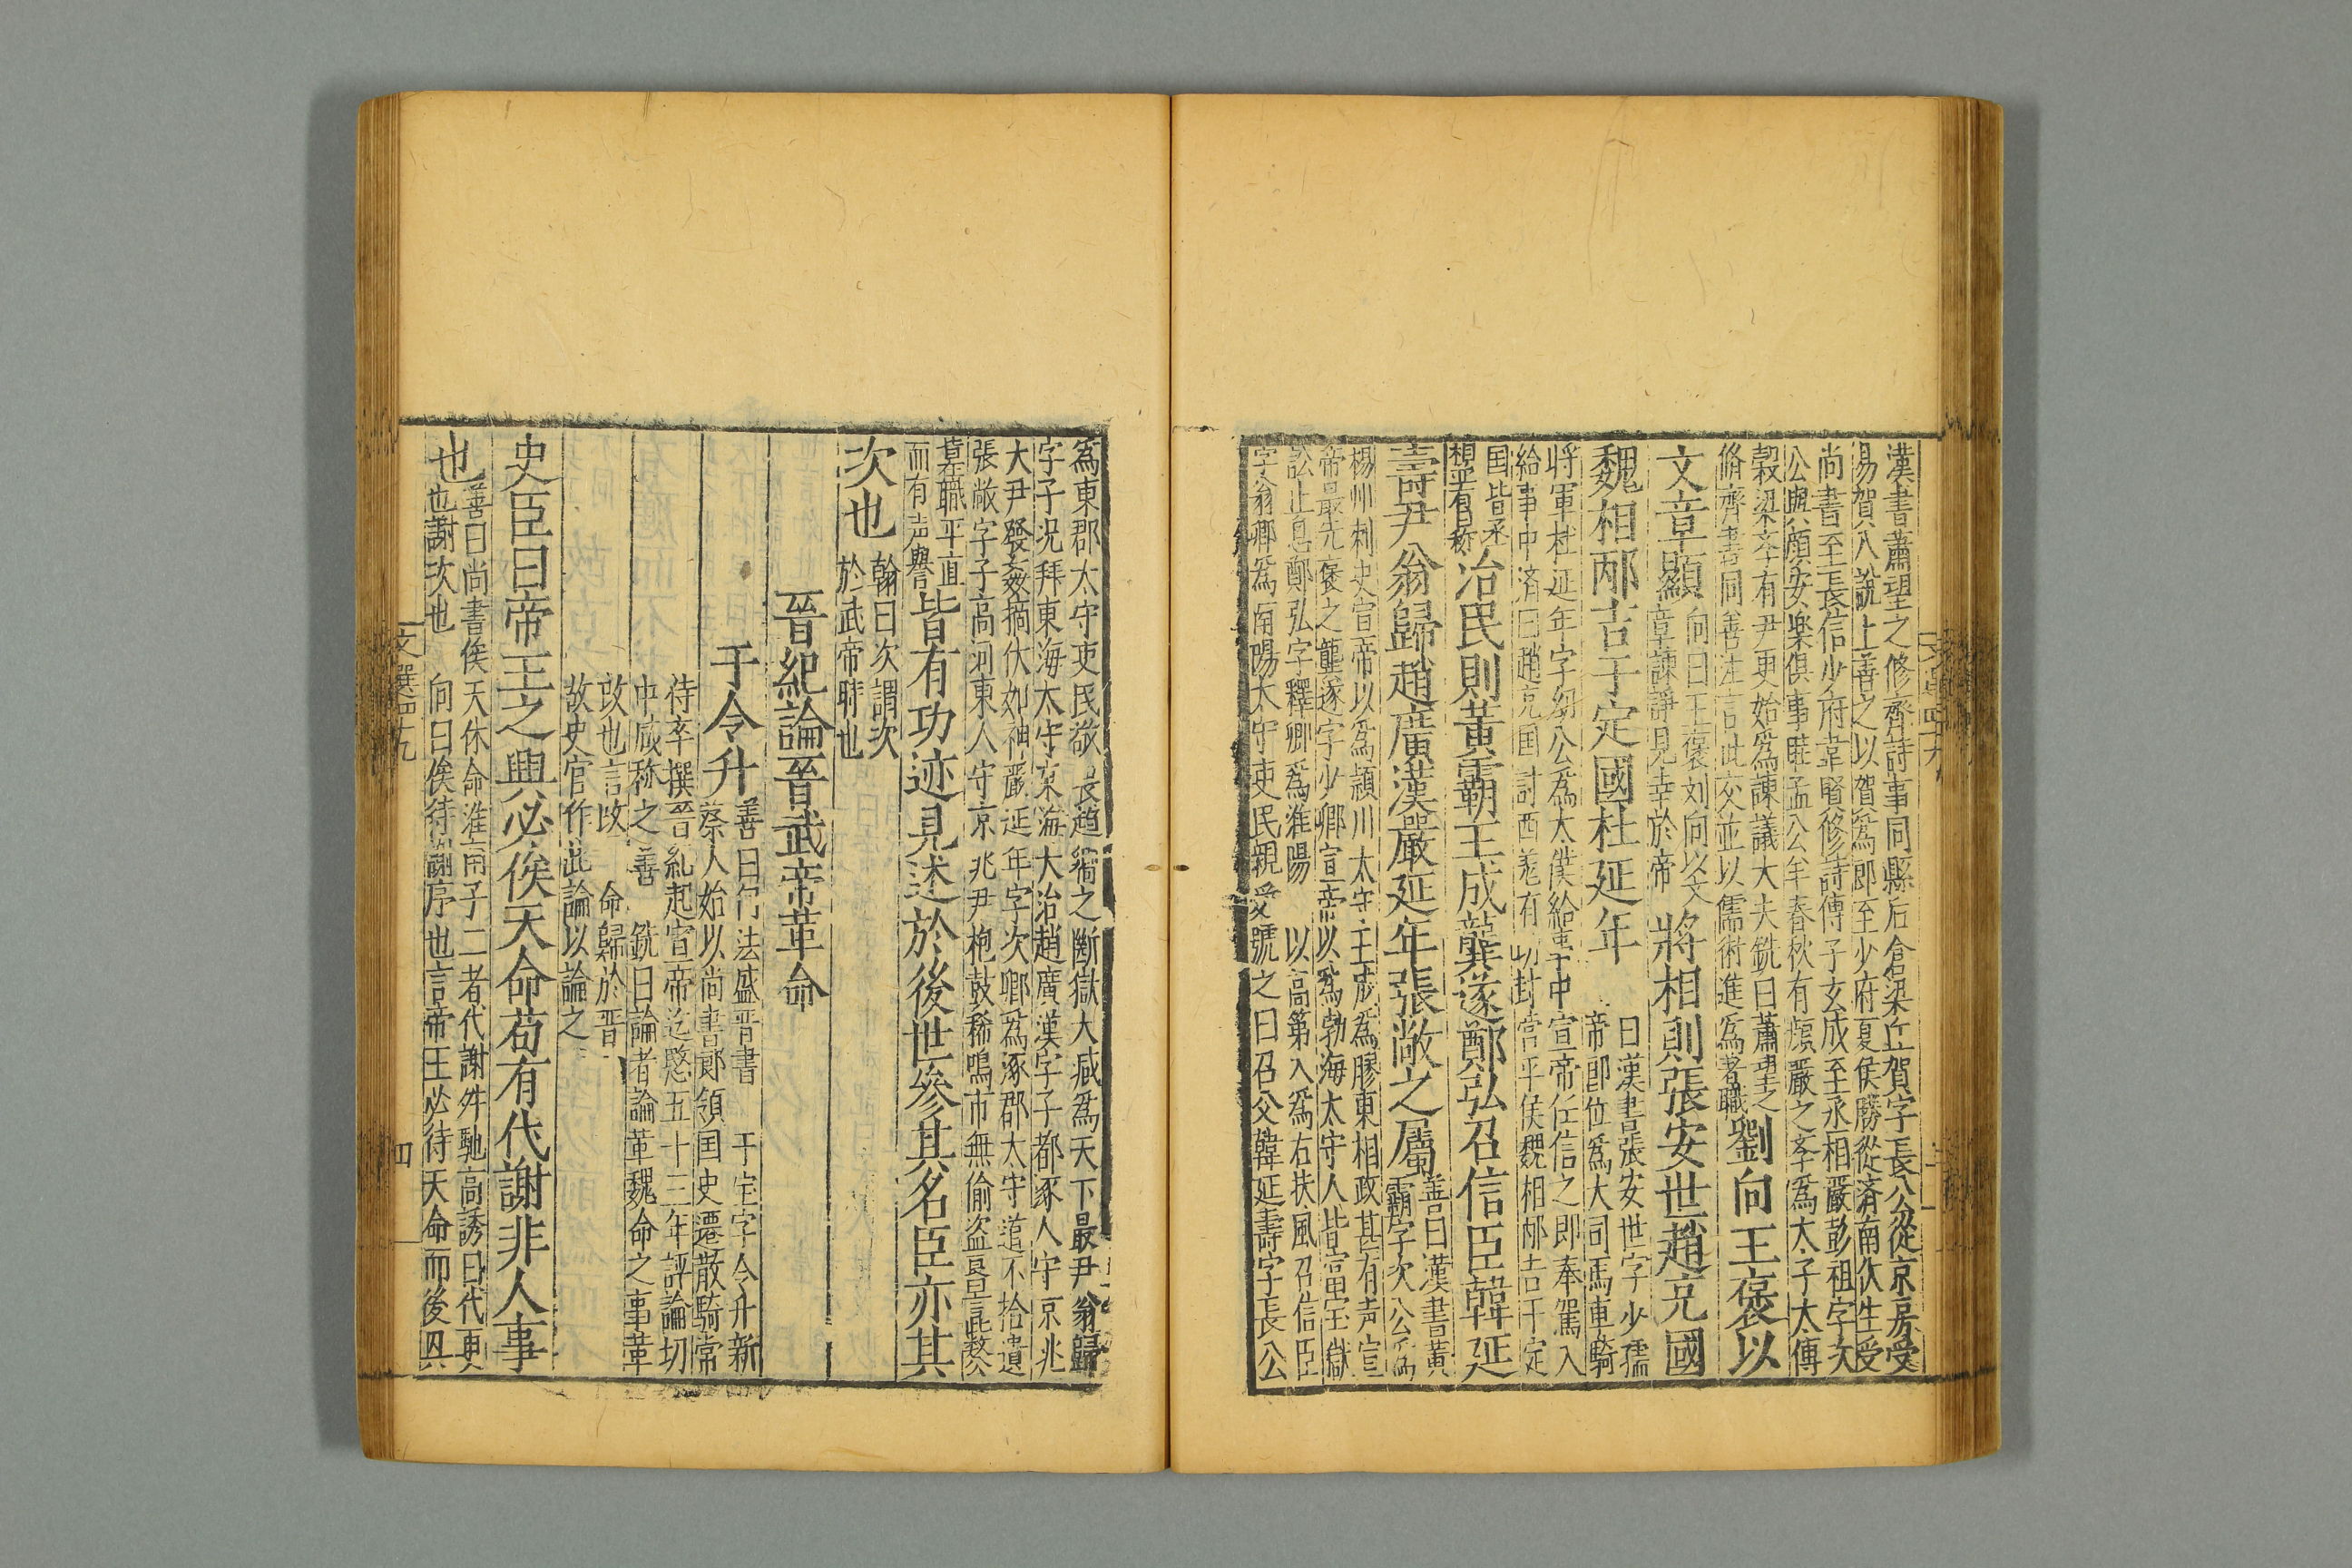 漢書蕭望之修齊詩事同縣后倉梁丘賀字長公從京房受
易賀入說上善之以賀爲郎至少府夏侯勝從済南伏生受
尚書至長信少府韋賢修詩傳子玄成至丞相嚴彭祖字
公與顔安樂俱事眭孟公羊春秋有顔嚴之孝爲太子太傅
穀梁孝有尹更始爲諫議大夫銑曰蕭望之
脩齊書同善注言此交並以儒術進爲著職劉向王褒以
文章顯向曰王褒刘向以文
章諫諍見幸於帝將相則張安世趙充國
魏相邴吉于定國杜延年
曰漢書張安世字少孺
帝即位爲大司馬車騎
将軍杜延年字幼公爲太僕給事中宣帝任信之即奉駕入
給事中済曰趙充国討西羌有功封営平侯魏相邴吉于定
国皆丞
相並有名称治民則黃霸王成龔遂鄭弘召信臣韓延
壽尹翁歸趙廣漢嚴延年張敞之屬善曰漢書黃
霸字次公爲
楊州刺史宣帝以爲頴川太守王成爲膠東相政甚有声宣
帝最先褒之龔遂字少卿宣帝以爲勃海太守人皆富実獄
訟止息鄭弘字釋卿爲淮陽 以高第入爲右扶風召信臣
字翁卿爲南陽太守吏民親愛號之曰召父韓延壽字長公
爲東郡太守吏民敬畏趙之断獄大减爲天下最尹翁歸
字子况拜東海太守東海大治趙廣漢字子都涿人守京兆
大尹發姦摘伏如神嚴延年字次卿爲涿郡太守道不拾遺
張敞字子高河東人守京兆尹枹鼓稀鳴市無偷盗言此
職平直
而有声譽皆有功迹見述於後世參其名臣亦其
次也翰曰次謂次
於武帝時也
晉紀論晉武帝革命
于令升善曰何法盛晋書 干宝字令升新
蔡人始以尚書郎領国史遷散騎常
待卒撰晉紀起宣帝迄愍五十三年評論切
中咸称之善 銑曰論者論革魏命之事革
改也言改 命歸於晋
故史官作此論以論之
史臣曰帝王之興必俟天命苟有代謝非人事
也善曰尚書俟天休命淮南子二者代謝舛馳高誘曰代更
也謝次也 向曰俟待謝序也言帝王必待天命而後興
文選四十九
四